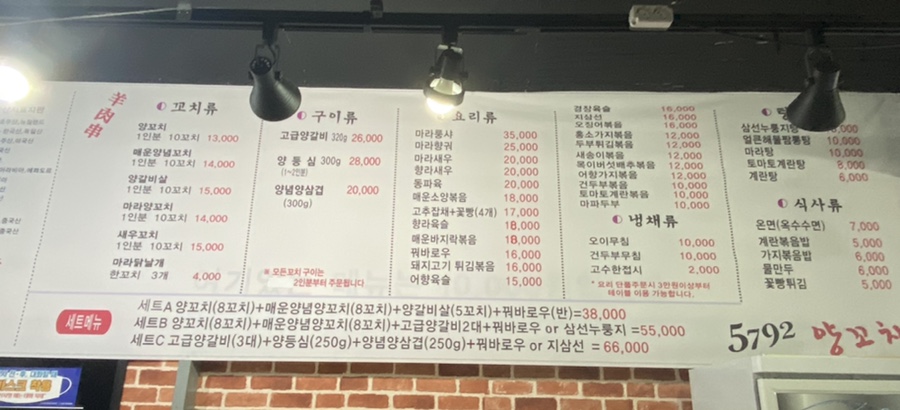 羊肉串
꼬치류
양꼬치
1인분 10꼬치 13,000
매운양념꼬치
1인분 10꼬치 14,000
양갈비살
1인분 10꼬치 15,000
마라양꼬치
1인분 10꼬치 14,000
새우꼬치
1인분 10꼬치 15,000
마라닭날개
한꼬치 3개 4,000
구이류
고급양갈비 320g 26,000
양 등 심 300g 28,000
(1~2인분)
양념양삼겹 20,000
(300g)
* 모든꼬치 구이는
2인분부터 주문됩니다
요리류
마라롱샤 35,000
마라향궈 25,000
마라새우 20,000
향라새우 20,000
동파육 20,000
매운소양볶음 18,000
고추잡채+꽃빵(4개) 17,000
향라육슬 18,000
매운바지락볶음 18,000
꿔바로우 16,000
돼지고기 튀김볶음 16,000
어향육슬 15,000
경장육슬 16,000
지삼선 16,000
오징어볶음 16,000
홍소가지볶음 12,000
두부튀김볶음 12,000
새송이볶음 12,000
목이버섯배추볶음 12,000
어향가지볶음 12,000
건두부볶음 10,000
토마토계란볶음 10,000
마파두부 10,000
냉채류
오이무침 10,000
건두부무침 10,000
고수한접시 2,000
* 요리 단품주문시 3만원이상부터
테이블 이용 가능합니다.
삼선누룽지탕
얼큰해물짬뽕탕 10,000
마라탕 10,000
토마토계란탕 8,000
계란탕 6,000
식사류
온면(옥수수면) 7,000
계란볶음밥 5,000
가지볶음밥 6,000
물만두 6,000
꽃빵튀김 5,000
세트메뉴
세트A 양꼬치(8꼬치)+매운양념양꼬치(8꼬치)+양갈비살(5꼬치)+꿔바로우(반)=38,000
세트B 양꼬치(8꼬치)+매운양념양꼬치(8꼬치)+고급양갈비2대+꿔바로우 or 삼선누룽지 =55,000
세트C 고급양갈비(3대)+양등심(250g)+양념양삼겹(250g)+꿔바로우 or 지삼선 = 66,000
5792 양꼬치